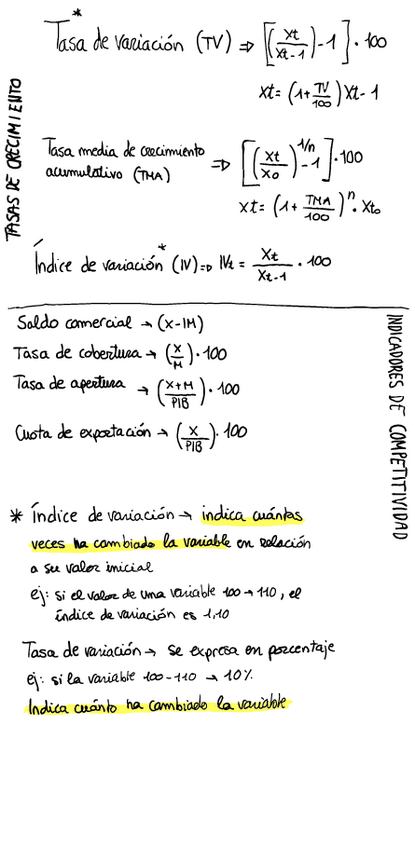 *
Tasa de variación (TV) ⇒ [(Xt/Xt-1)-1]·100
Xt= (1+TV/100)Xt-1
TASAS DE CRECIMIENTO
Tasa media de crecimiento
acumulativo (TMA) ⇒ [(Xt/X0)^1/n -1]·100
Xt= (1+TMA/100)^n · Xt0
Índice de variación* (IV)⇒ IVt = Xt/Xt-1 · 100
Saldo comercial → (X-IM)
Tasa de cobertura → (X/M)·100
Tasa de apertura → (X+M/PIB)·100
Cuota de exportación → (X/PIB)·100
INDICADORES DE COMPETITIVIDAD
* Índice de variación → indica cuántas
veces ha cambiado la variable en relación
a su valor inicial
ej: si el valor de una variable 100→110, el
índice de variación es 1,10
Tasa de variación → se expresa en porcentaje
ej: si la variable 100-110 → 10%
Indica cuánto ha cambiado la variable